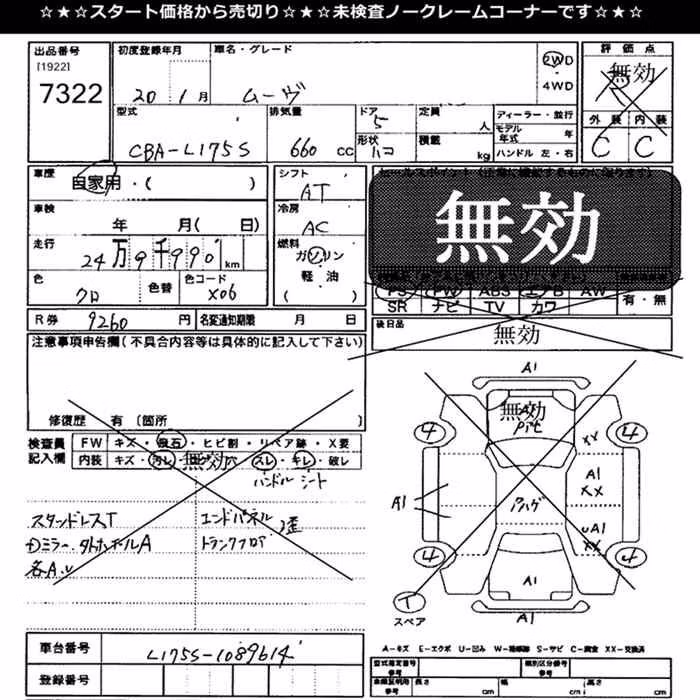 ☆★☆★スタート価格から売切り☆★☆★未検査ノークレームコーナーです☆★☆★
出品番号
[1922]
7322
初度登録年月
20 1月
車名・グレード
ムーヴ
2WD
4WD
評価点
無効
型式
CBA-L175S
排気量
660 cc
ドア
5
形状
ハコ
定員
人
積載
kg
ディーラー・並行
モデル年式 年
ハンドル 左・右
外装 内装
C C
車歴
自家用・( )
車検
年 月( 日)
走行
24万9千990 km
色
クロ
色替
色コード
X06
シフト
AT
冷房
AC
燃料
ガソリン
軽油
( )
無効
PS PW ABS エアB AW
SR ナビ TV カワ
有・無
後日品
無効
R券 9260 円
名変通知期限 月 日
注意事項申告欄(不具合内容等は具体的に記入して下さい)
修復歴 有〔箇所 〕
検査員
記入欄
FW キズ・飛石・ヒビ割・リペア跡・X要
内装 キズ・汚レ・コゲ穴・スレ・キレ・破レ
無効
ハンドル シート
スタンドレスT
エンドパネル 歪
トランクフロア
各A.U
A1
無効
4 4
XX
A1
A1
XX
アハゲ
UA1
XX
4 4
A1
T
スペア
A1
A-キズ E-エクボ U-凹み W-補修跡 S-サビ C-腐食 XX-交換済
車台番号 L175S-1089614
登録番号
型式指定番号
参考
類別区分番号
参考
車検証明用
参考
長さ cm
幅 cm
高さ cm